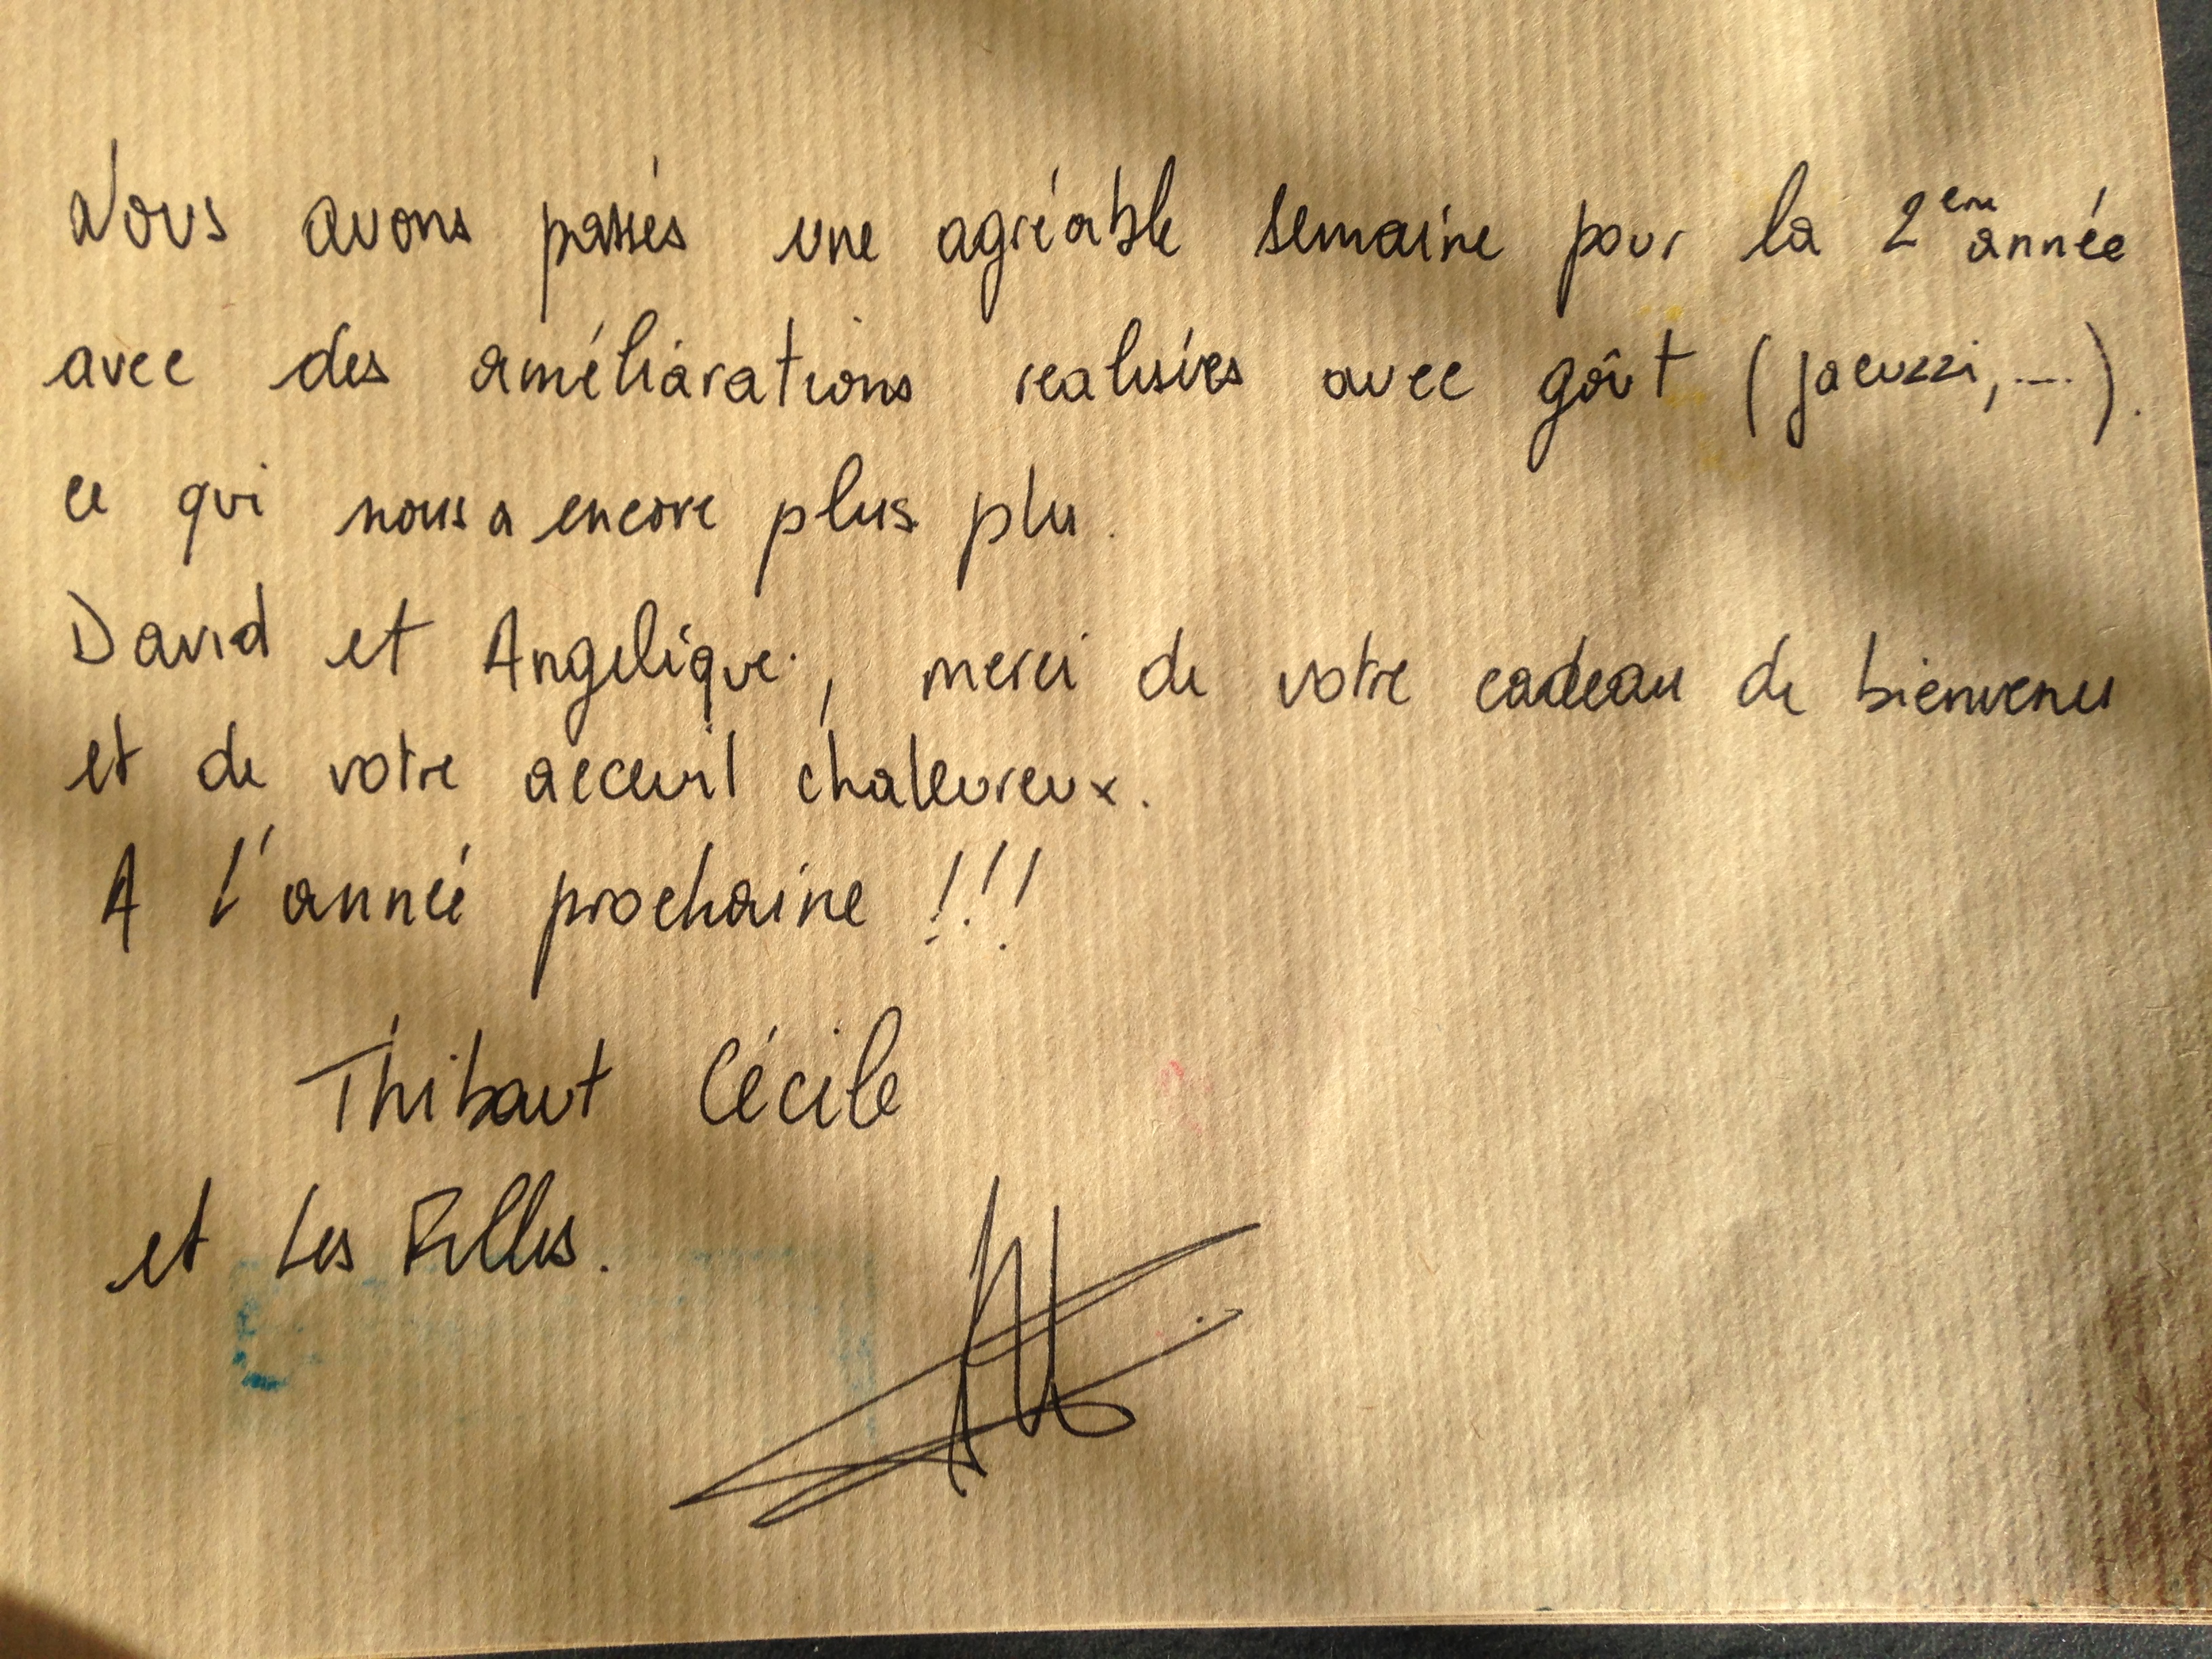 Nous avons passés une agréable semaine pour la 2eme année
avec des améliorations realisées avec goût (jacuzzi, ....).
ce qui nous a encore plus plu.
David et Angelique, merci de votre cadeau de bienvenu
et de votre acceuil chaleureux.
A l'année prochaine !!!
Thibaut Cécile
et Les Filles.